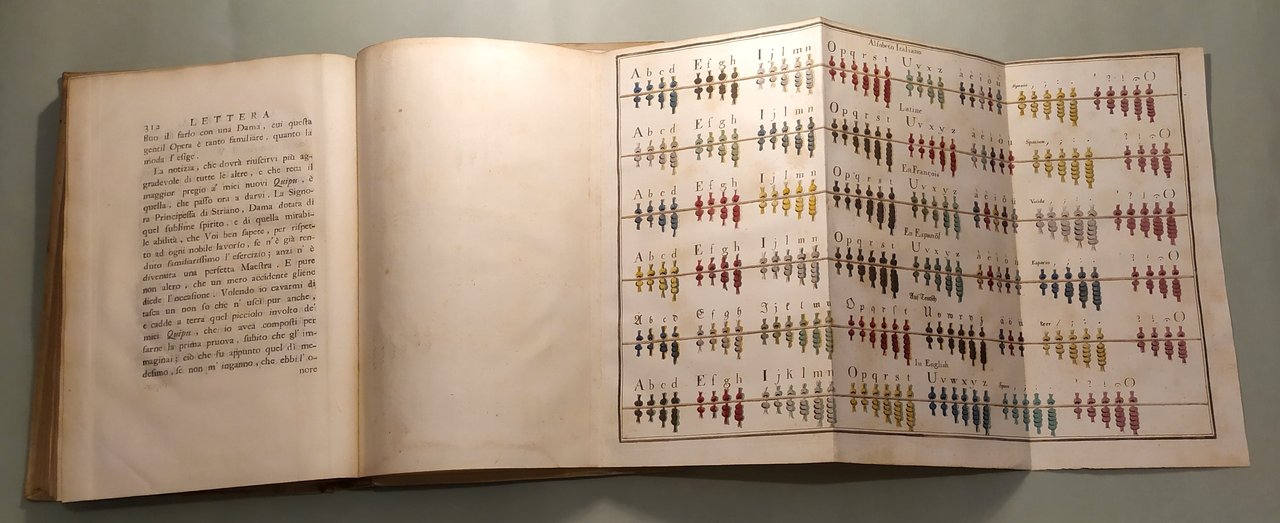 312 LETTERA
suo il farlo con una Dama, cui questa
gentil Opera è tanto familiare, quanto la
moda l'esige.
La notizia, che dovrà riuscirvi più ag-
gradevole di tutte le altre, e che reca il
maggior pregio a' miei nuovi Quipu, è
quella, che passo ora a darvi. La Signo-
ra Principessa di Striano, Dama dotata di
quel sublime spirito, e di quella mirabi-
le abilità, che Voi ben sapete, per rispet-
to ad ogni nobile lavorìo, se n'è già ren-
duto familiarissimo l'esercizio; anzi n'è
divenuta una perfetta Maestra. E pure
non altro, che un mero accidente gliene
diede l'occasione. Volendo io cavarmi di
tasca un non so che n'uscì pur anche,
e cadde a terra quel picciolo involto de'
miei Quipu, che io avea composti per
farne la prima pruova, subito che gl'im-
maginai; ciò che fu appunto quel dì me-
desimo, se non m'inganno, che ebbi l'o-
nore
Alfabeto Italiano
A b c d E f g h I j l m n O p q r s t U v x z à è ì ò ù
Latine
A b c d E f g h I j l m n O p q r s t U v x y z
En François
A b c d E f g h I j l m n O p q r s t U v x y z Vuide
En Español
A b c d E f g h I j l m n O p q r s t U v x y z Espacio
Auf Teutsch
A b c d E f g h I j k l m n O p q r s t U v w x y z leer
In English
A b c d E f g h I j k l m n O p q r s t U v w x y z